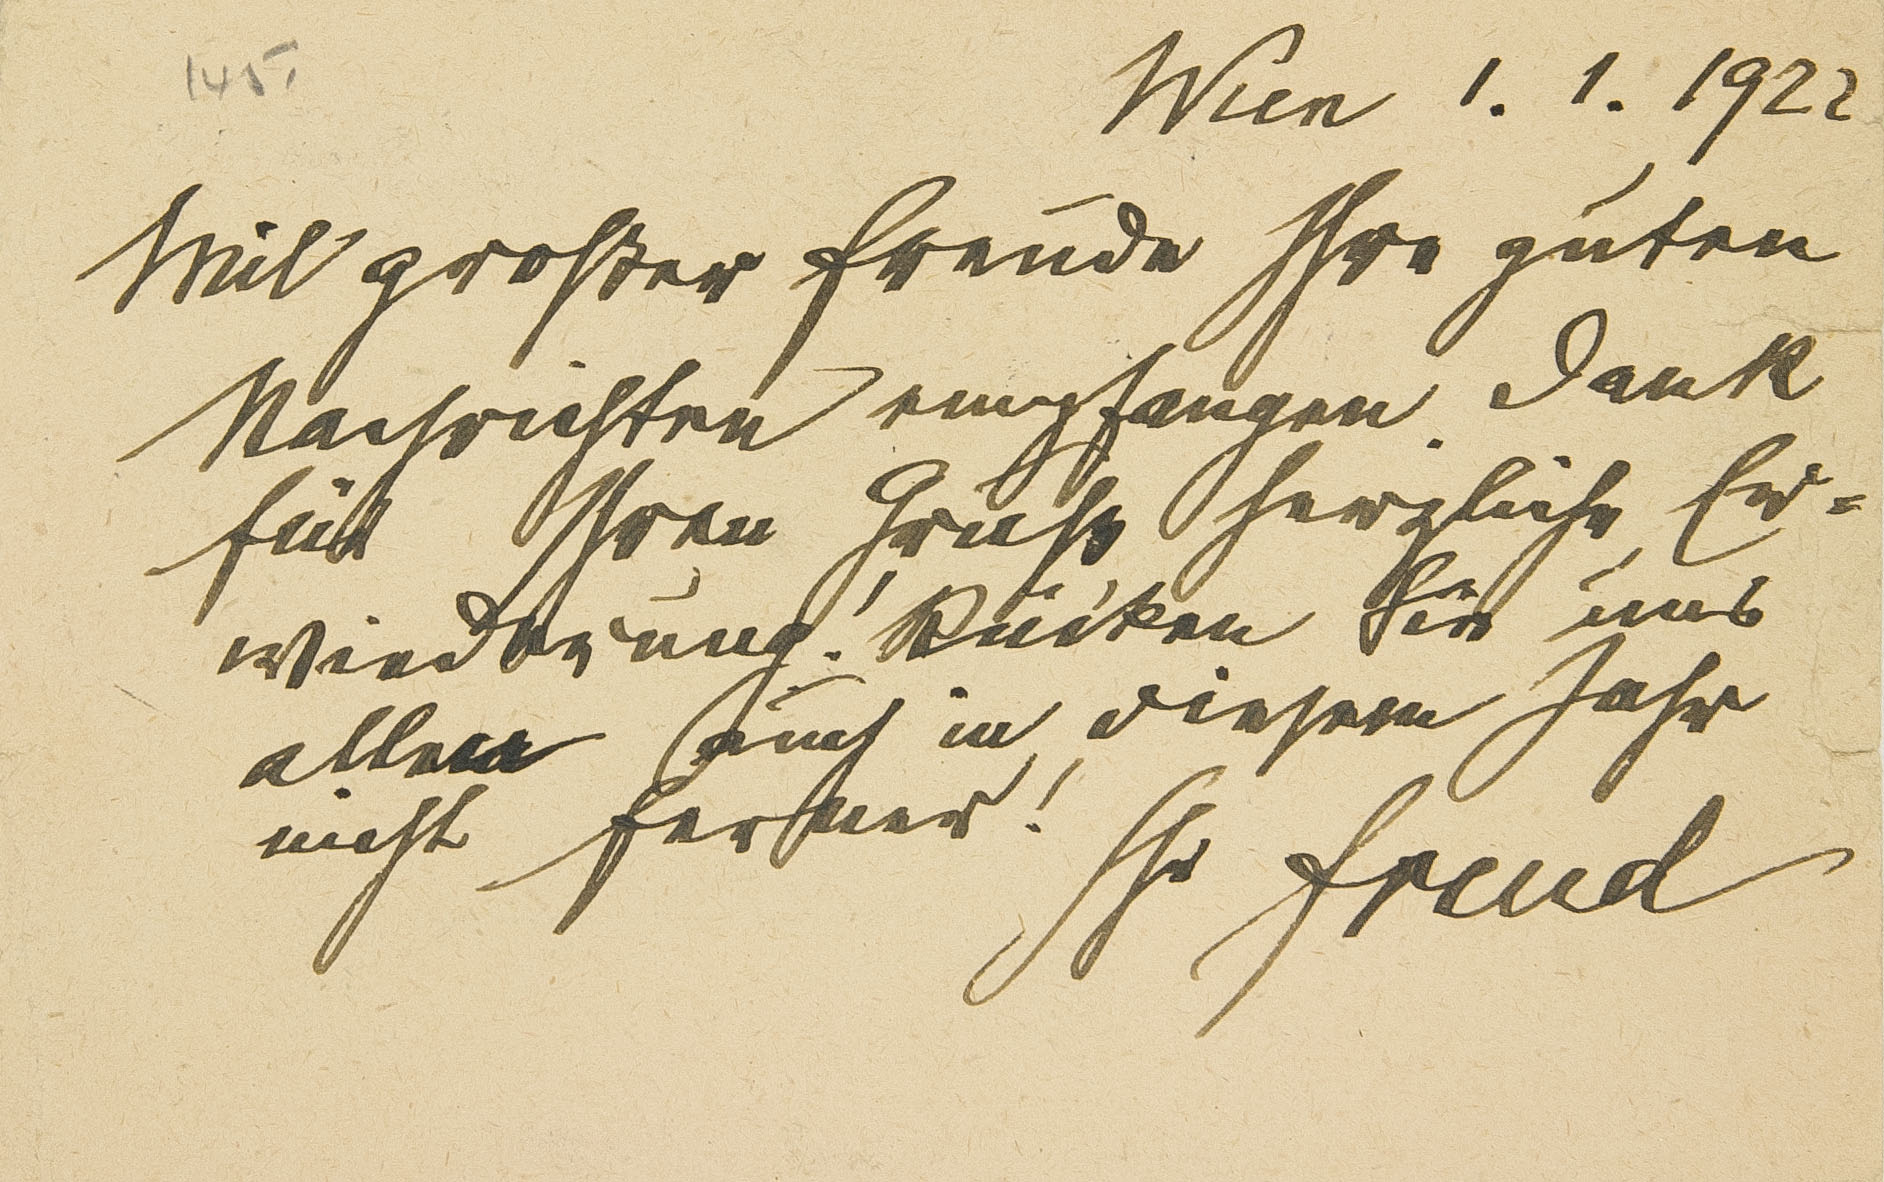 145.
Wien 1. 1. 1922
Mit großer Freude Ihre guten
Nachrichten empfangen. Dank
für Ihren Gruß, herzliche Er-
wiederung! Rücken Sie uns
allen auch in diesem Jahr
nicht ferner!
Ihr Freud